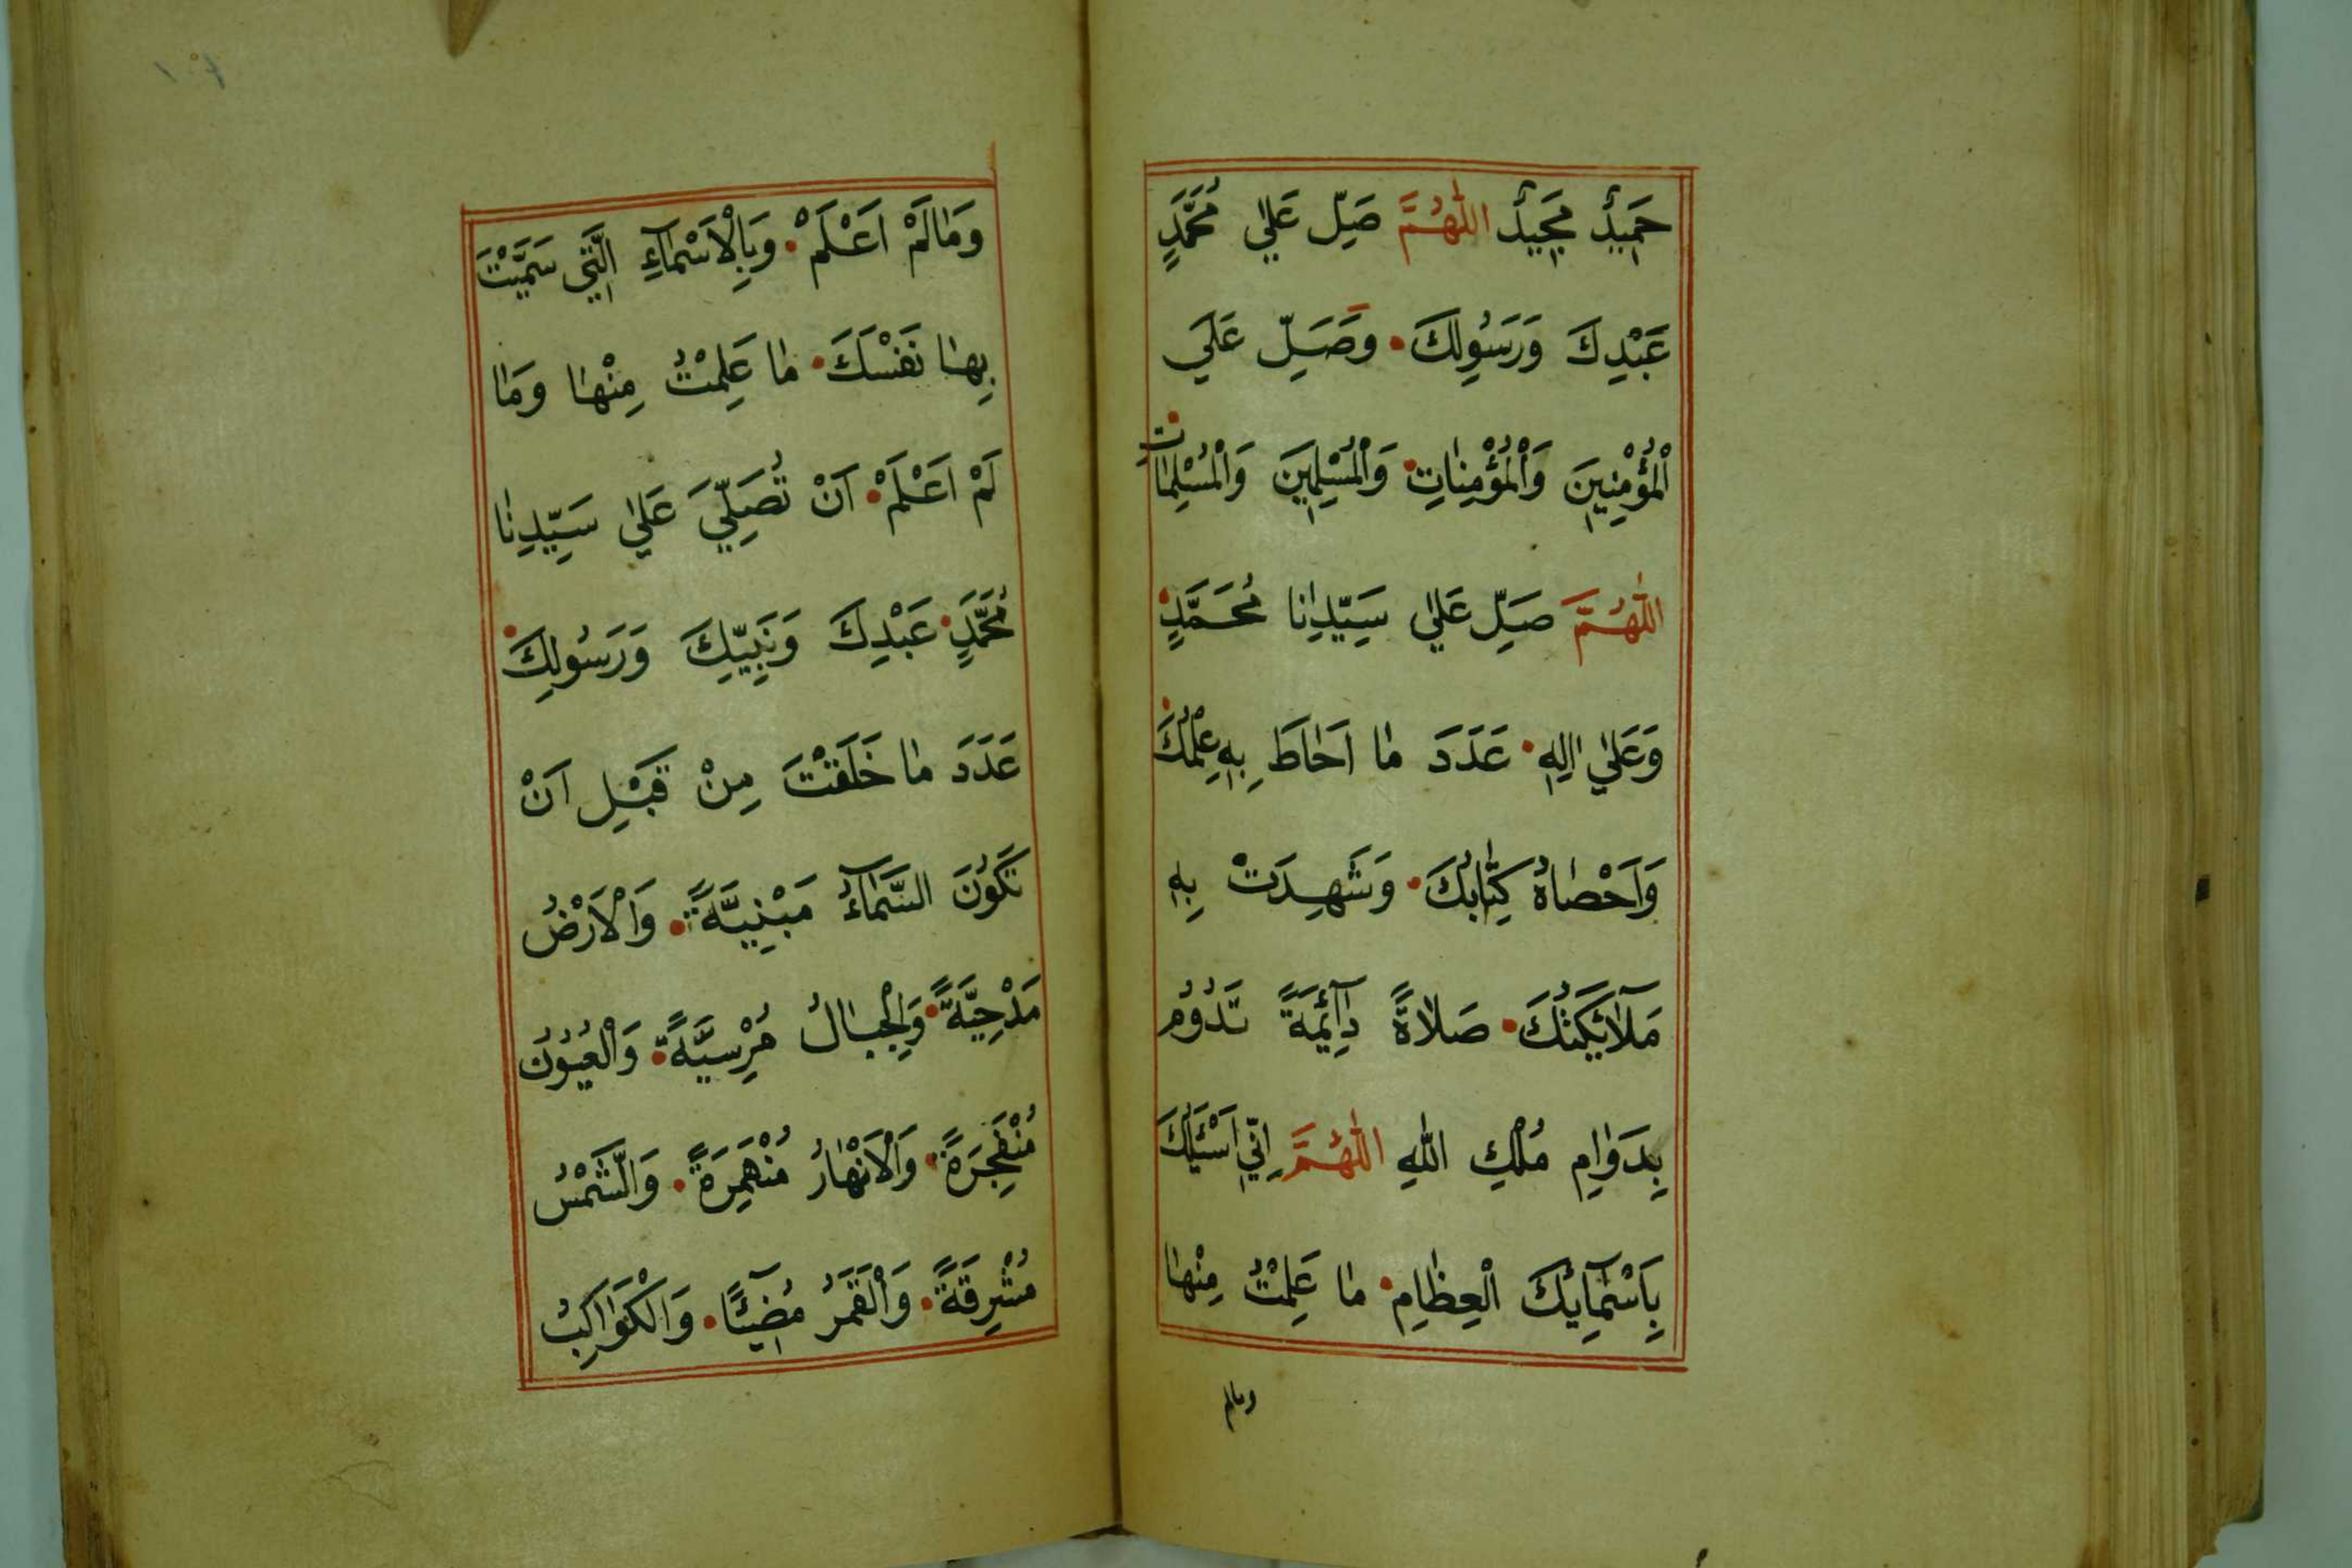 حَمِيدٌ مَجِيدٌ اَللّٰهُمَّ صَلِّ عَلٰي مُحَمَّدٍ
عَبْدِكَ وَرَسُولِكَ وَصَلِّ عَلَي
الْمُؤْمِنِينَ وَالْمُؤْمِنَاتِ وَالْمُسْلِمِينَ وَالْمُسْلِمَاتِ
اَللّٰهُمَّ صَلِّ عَلٰي سَيِّدِنَا مُحَمَّدٍ
وَعَلٰي اٰلِهِ عَدَدَ مٰا اَحٰاطَ بِهِ عِلْمُكَ
وَاَحْصٰاهُ كِتٰابُكَ وَشَهِدَتْ بِهِ
مَلَآئِكَتُكَ صَلَاةً دَآئِمَةً تَدُوُمُ
بِدَوٰامِ مُلْكِ اللّٰهِ اَللّٰهُمَّ اِنِّي اَسْئَلُكَ
بِاَسْمَآئِكَ الْعِظٰامِ مٰا عَلِمْتُ مِنْهٰا
ومالم
وَمٰالَمْ اَعْلَمْ وَبِالْاَسْمَآءِ الَّتِي سَمَّيْتَ
بِهٰا نَفْسَكَ مٰا عَلِمْتُ مِنْهٰا وَمٰا
لَمْ اَعْلَمْ اَنْ تُصَلِّيَ عَلٰي سَيِّدِنٰا
مُحَمَّدٍ عَبْدِكَ وَنَبِيِّكَ وَرَسُولِكَ
عَدَدَ مٰا خَلَقْتَ مِنْ قَبْلِ اَنْ
تَكُوْنَ السَّمَآءُ مَبْنِيَّةً وَالْاَرْضُ
مَدْحِيَّةً وَالْجِبٰالُ مُرْسِيَّةً وَالْعُيُوُنُ
مُنْفَجِرَةً وَالْاَنْهٰارُ مُنْهَمِرَةً وَالشَّمْسُ
مُشْرِقَةً وَالْقَمَرُ مُضِيْٓئًا وَالْكَوٰاكِبُ